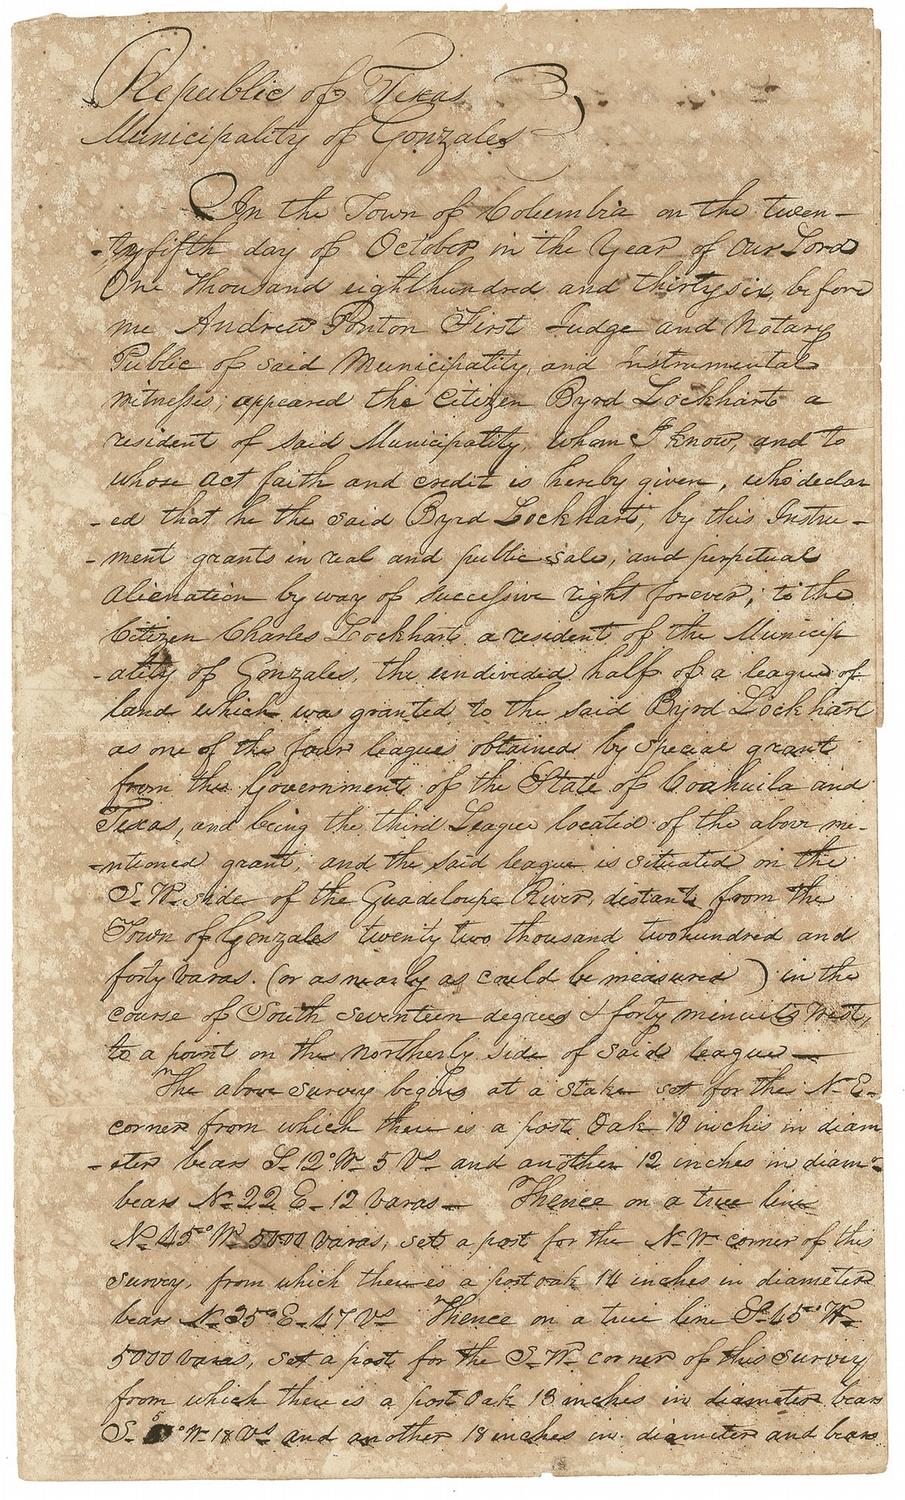 Republic of Texas
Municipality of Gonzales
In the Town of Columbia on the twen-
-ty fifth day of October in the Year of our Lord
One Thousand eight hundred and thirty six, before
me Andrew Ponton First Judge and Notary
Public of said Municipality, and instrumental
witnesses, appeared the Citizen Byrd Lockhart a
resident of said Municipality, whom I know, and to
whose act faith and credit is hereby given, who declar
-ed that he the said Byrd Lockhart, by this Instru-
-ment grants in real and public sale, and perpetual
alienation by way of successive right forever, to the
Citizen Charles Lockhart a resident of the Municip
-ality of Gonzales, the undivided half of a league of
land which was granted to the said Byrd Lockhart
as one of the four leagues obtained by special grant
from the Government of the State of Coahuila and
Texas, and being the third League located of the above me-
-ntioned grant, and the said league is situated on the
S. W. side of the Guadeloupe River, distant from the
Town of Gonzales twenty two thousand two hundred and
forty varas. (or as nearly as could be measured) in the
course of South seventeen degrees & forty minuits West,
to a point on the northerly side of said league—
The above survey begins at a stake set for the N. E.
corner from which there is a post Oak 10 inches in diam
-eter bears S. 12° W. 5 Vs and another 12 inches in diamr
bears N. 22 E. 12 varas— Thence on a true line
N. 45° W. 5000 varas, set a post for the N. W. corner of this
survey, from which there is a post oak 14 inches in diameter
bears N. 35° E. 47 Vs Thence on a true line S. 45° W.
5000 varas, set a post for the S. W. corner of this survey
from which there is a post Oak 13 inches in diameter bears
S. 5° W. 18 Vs and another 18 inches in diameter and bears